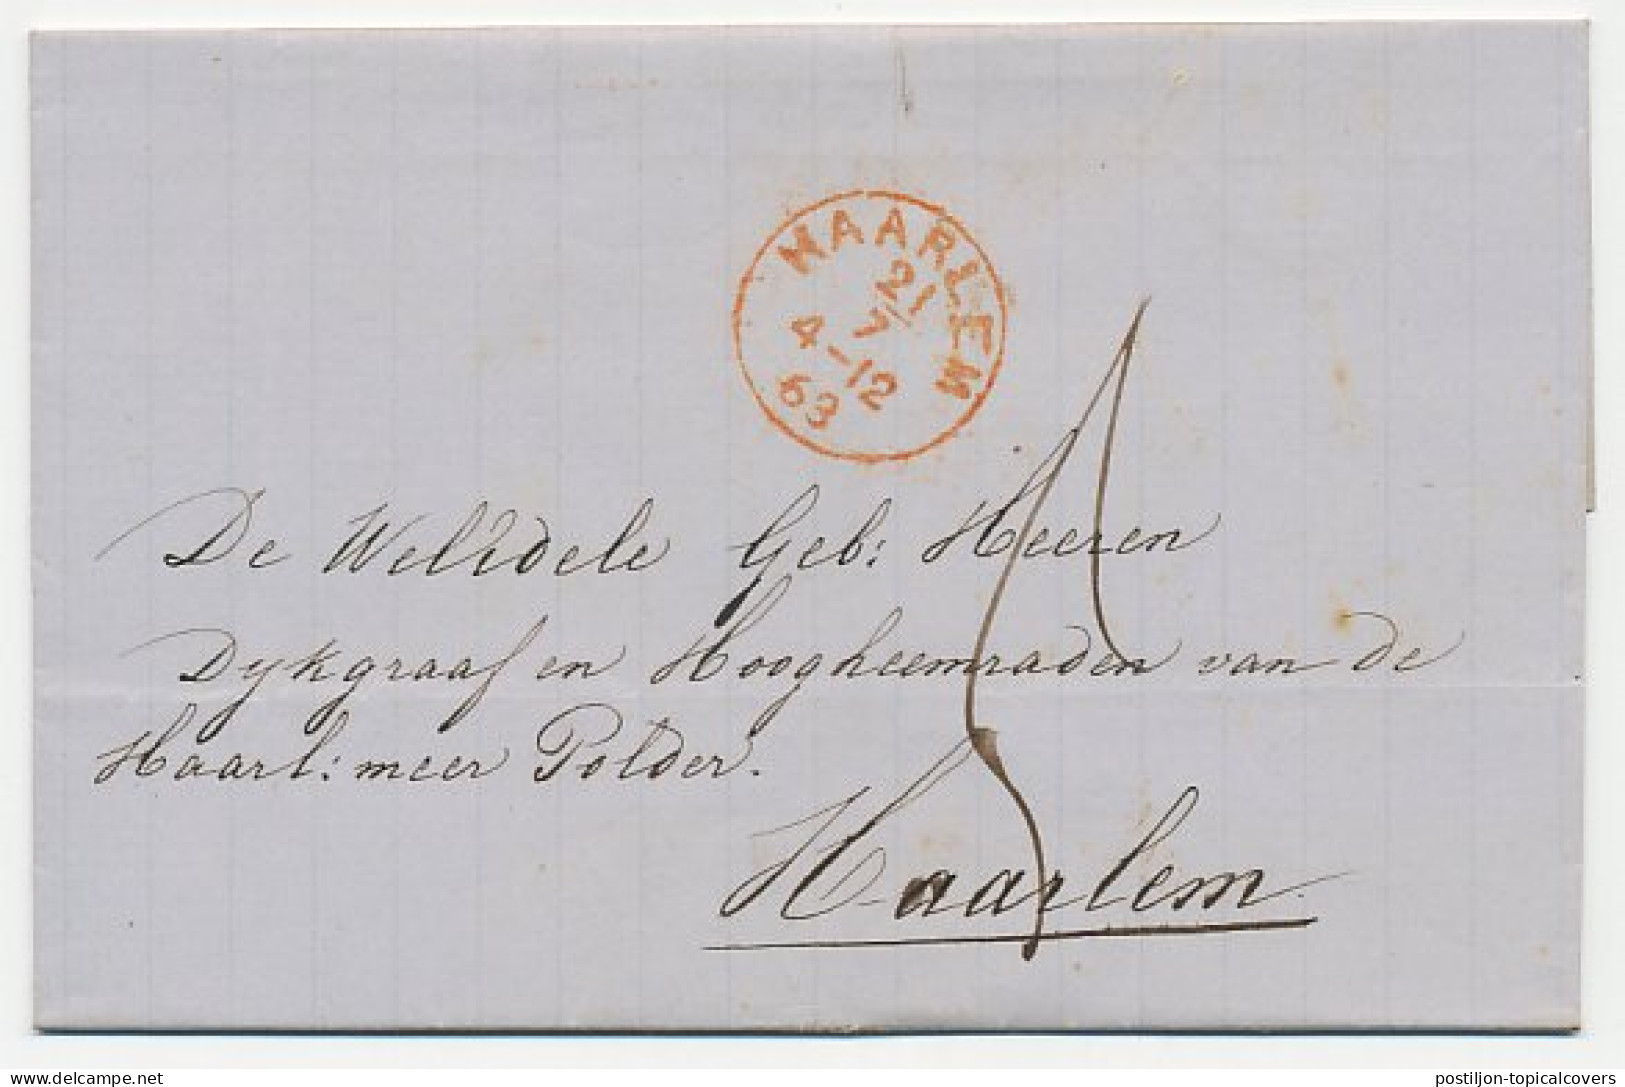 HAARLEM
21
7
4-12
63
De WelEdele Geb: Heeren
Dykgraaf en Hoogheemraden van de
Haarl: meer Polder.
Haarlem
postiljon-topicalcovers
delcampe.net